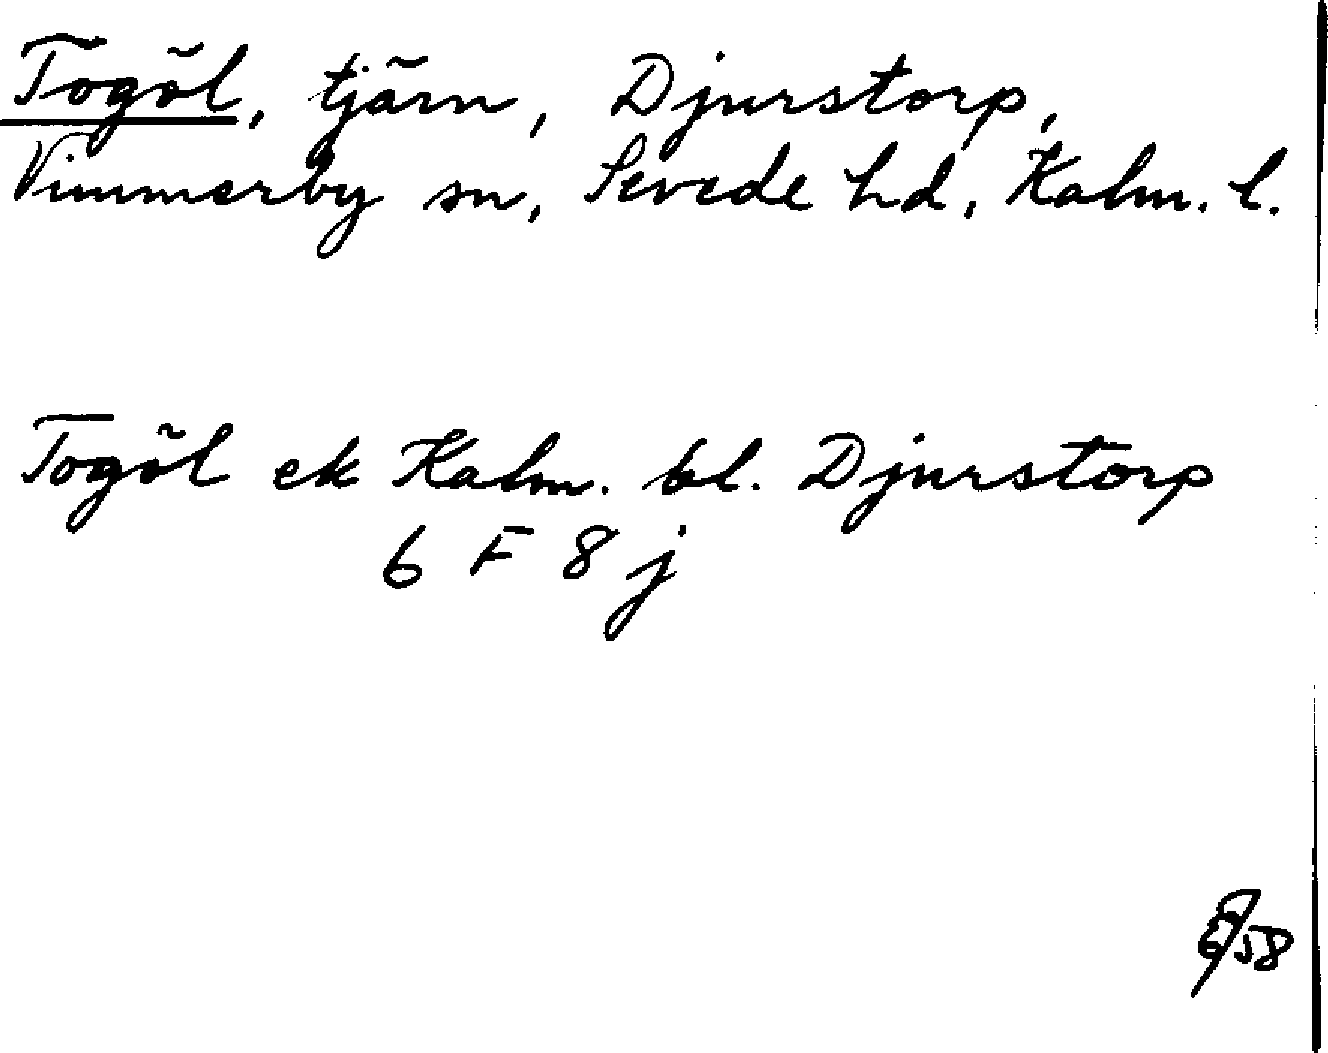 Togöl, tjärn, Djurstorp,
Vimmerby sn, Sevede hd, Kalm. l.
Togöl ek Kalm. bl. Djurstorp
6 F 8 j